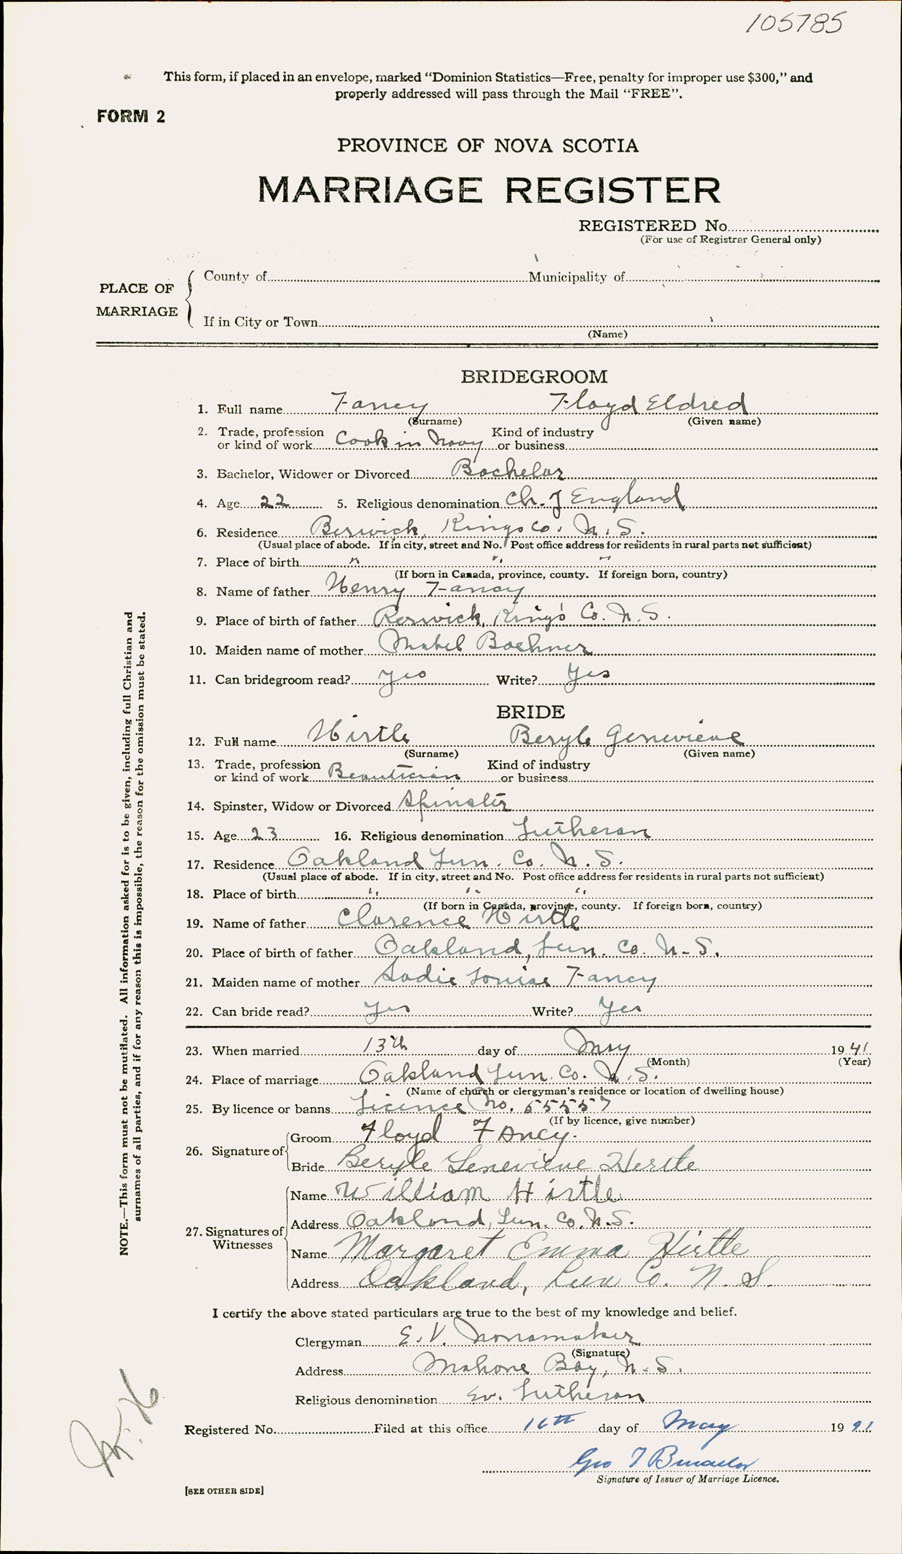 105785
This form, if placed in an envelope, marked "Dominion Statistics—Free, penalty for improper use $300," and
properly addressed will pass through the Mail "FREE".
FORM 2
PROVINCE OF NOVA SCOTIA
MARRIAGE REGISTER
REGISTERED No.
(For use of Registrar General only)
PLACE OF MARRIAGE
County of Municipality of
If in City or Town
(Name)
BRIDEGROOM
1. Full name Fancy Floyd Eldred
(Surname) (Given name)
2. Trade, profession or kind of work Cook in Navy Kind of industry or business
3. Bachelor, Widower or Divorced Bachelor
4. Age 22 5. Religious denomination Ch. of England
6. Residence Berwick, Kings Co. N.S.
(Usual place of abode. If in city, street and No. Post office address for residents in rural parts not sufficient)
7. Place of birth " " "
(If born in Canada, province, county. If foreign born, country)
8. Name of father Henry Fancy
9. Place of birth of father Berwick, King's Co. N.S.
10. Maiden name of mother Mabel Boehner
11. Can bridegroom read? Yes Write? Yes
BRIDE
12. Full name Hirtle Beryle Genevieve
(Surname) (Given name)
13. Trade, profession or kind of work Beautician Kind of industry or business
14. Spinster, Widow or Divorced Spinster
15. Age 23 16. Religious denomination Lutheran
17. Residence Oakland Lun. Co. N.S.
(Usual place of abode. If in city, street and No. Post office address for residents in rural parts not sufficient)
18. Place of birth " " "
(If born in Canada, province, county. If foreign born, country)
19. Name of father Clarence Hirtle
20. Place of birth of father Oakland, Lun. Co. N.S.
21. Maiden name of mother Sadie Louise Fancy
22. Can bride read? Yes Write? Yes
23. When married 13th day of May 1941
(Month) (Year)
24. Place of marriage Oakland Lun. Co. N.S.
(Name of church or clergyman's residence or location of dwelling house)
25. By licence or banns Licence No. 55557
(If by licence, give number)
26. Signature of Groom Floyd Fancy.
Bride Beryle Genevieve Hirtle
27. Signatures of Witnesses
Name William Hirtle
Address Oakland, Lun. Co. N.S.
Name Margaret Emma Hirtle
Address Oakland, Lun Co. N.S.
I certify the above stated particulars are true to the best of my knowledge and belief.
Clergyman E. V. Nonamaker
(Signature)
Address Mahone Bay, N.S.
Religious denomination Ev. Lutheran
Registered No. Filed at this office 16th day of May 1941
Geo
Signature of Issuer of Marriage Licence.
[SEE OTHER SIDE]
NOTE.—This form must not be mutilated. All information asked for is to be given, including full Christian and
surnames of all parties, and if for any reason this is impossible, the reason for the omission must be stated.